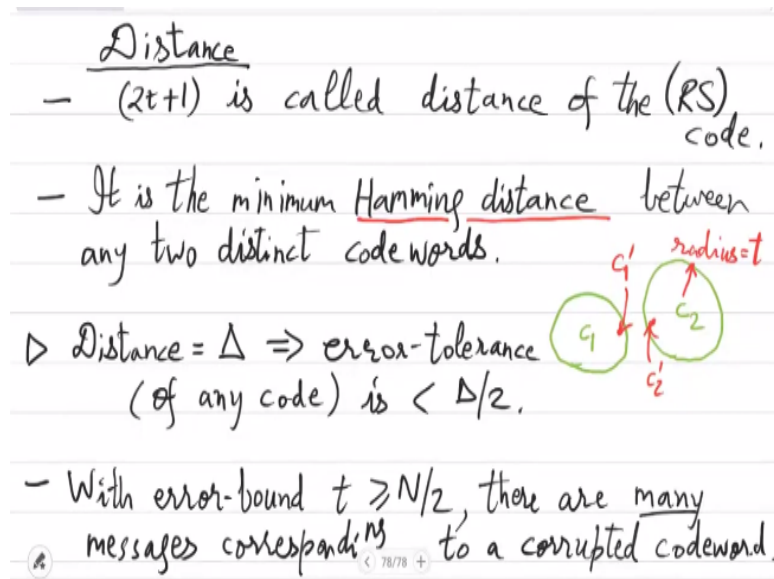 Distance
- (2t+1) is called distance of the (RS)
code.
- It is the minimum Hamming distance between
any two distinct codewords.
radius=t
C1'
C1
C2
C2'
▷ Distance = Δ ⇒ error-tolerance
(of any code) is < Δ/2.
- With error-bound t ≥ N/2, there are many
messages corresponding to a corrupted codeword.
< 78/78 +